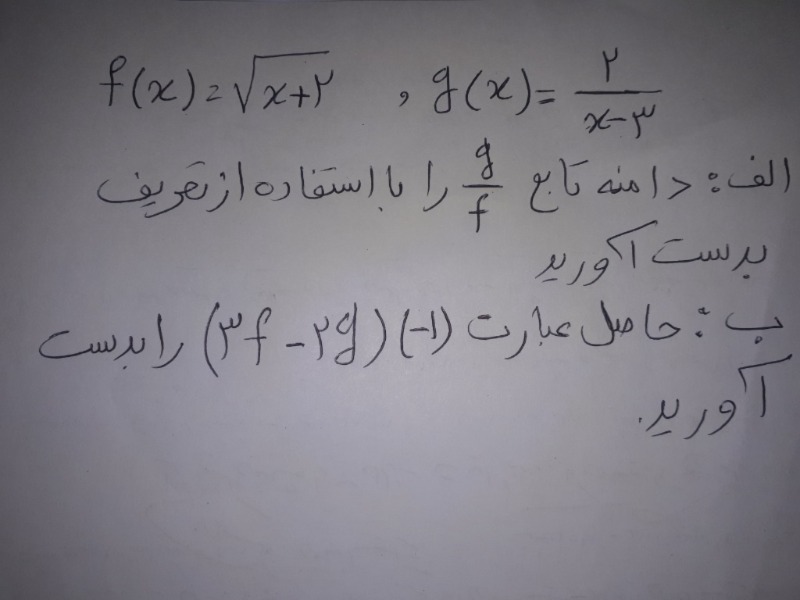 f(x)=√x+۲ , g(x)=۲/x-۳
الف: دامنه تابع g/f را با استفاده از تعریف
بدست آورید
ب: حاصل عبارت (۳f-۲g)(-۱) را بدست
آورید.